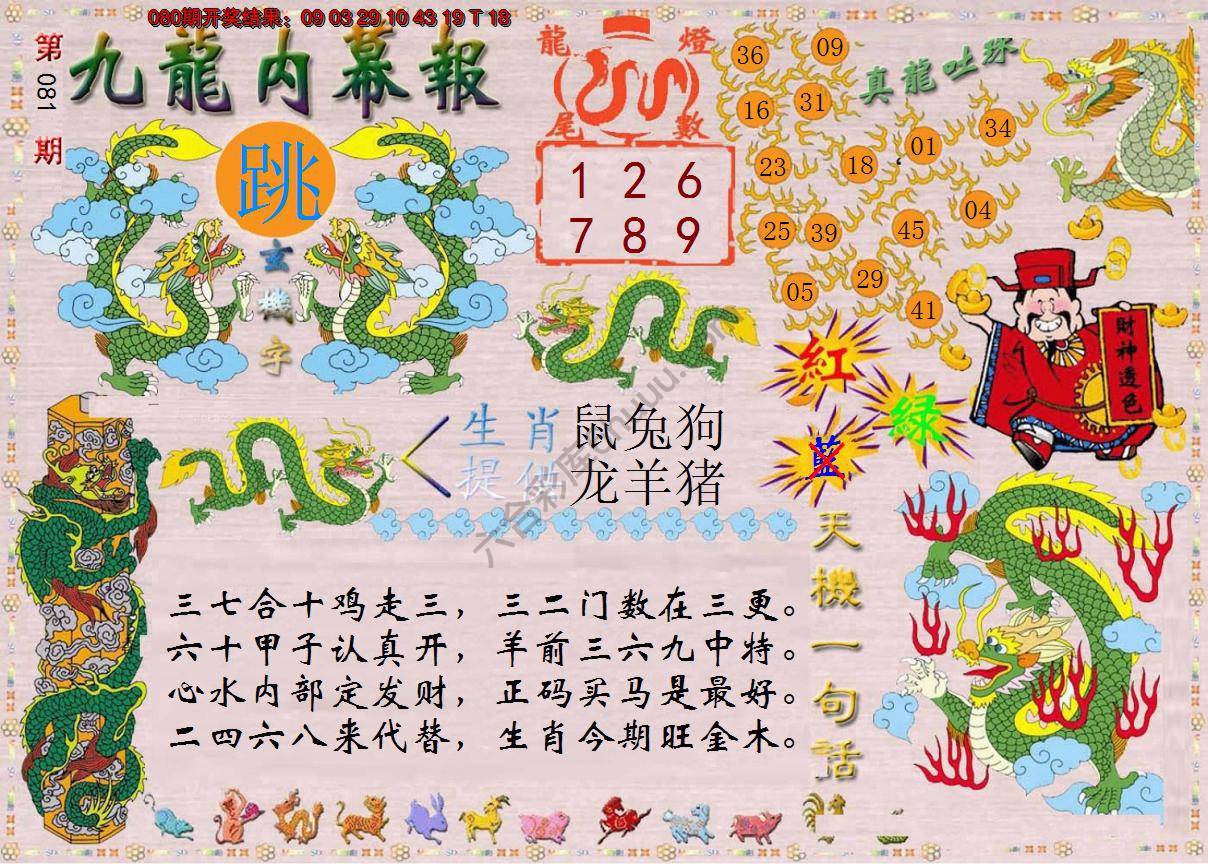 080期开奖结果：09 03 29 10 43 19 T 18
第
081
期
九龍内幕報
龍 燈
尾 數
1 2 6
7 8 9
真龍吐珠
36
09
16
31
23
18
01
34
25
39
45
04
05
29
41
跳
玄
機
字
財神透色
紅
綠
藍
生肖
提供
鼠兔狗
龙羊猪
天機一句話
三七合十鸡走三，三二门数在三更。
六十甲子认真开，羊前三六九中特。
心水内部定发财，正码买马是最好。
二四六八来代替，生肖今期旺金木。